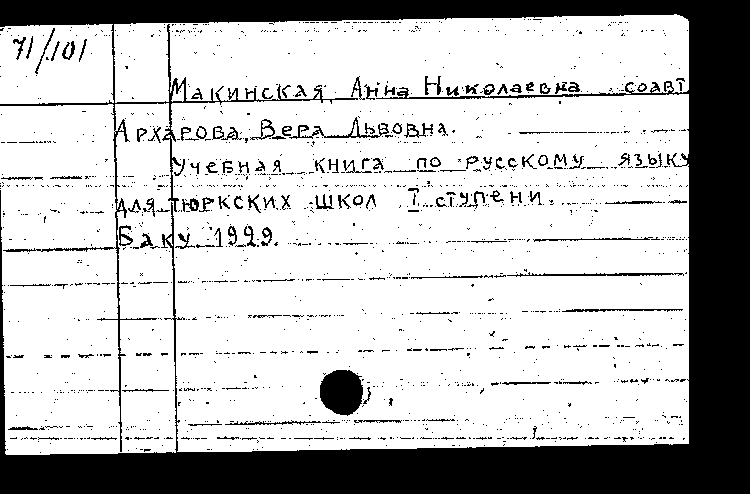 71/101
Макинская, Анна Николаевна соавт.
Архарова, Вера Львовна.
Учебная книга по русскому языку
для тюркских школ I ступени.
Баку 1929.